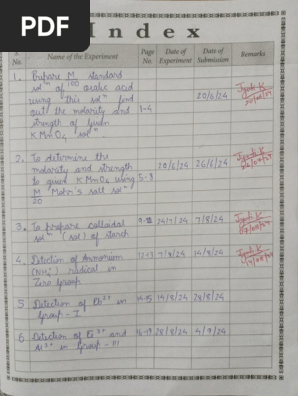 PDF
Index
No.
Name of the Experiment
Page No.
Date of Experiment
Date of Submission
Remarks
1. Prepare M standard
100
solⁿ of oxalic acid
using this solⁿ find
out the molarity and
strength of given
KMnO₄ solⁿ
1-4
20/6/24
2. To determine the
molarity and strength
to given KMnO₄ using
M Mohr's salt solⁿ
20
5-8
20/6/24
26/6/24
3. To prepare colloidal
solⁿ (sol) of starch
9-11
24/7/24
7/8/24
4. Detection of Ammonium
(NH₄⁺) radical in
Zero group
12-13
7/8/24
14/8/24
5 Detection of Pb²⁺ in
Group - I
14-15
14/8/24
28/8/24
6 Detection of Fe³⁺ and
Al³⁺ in Group - III
16-19
28/8/24
4/9/24